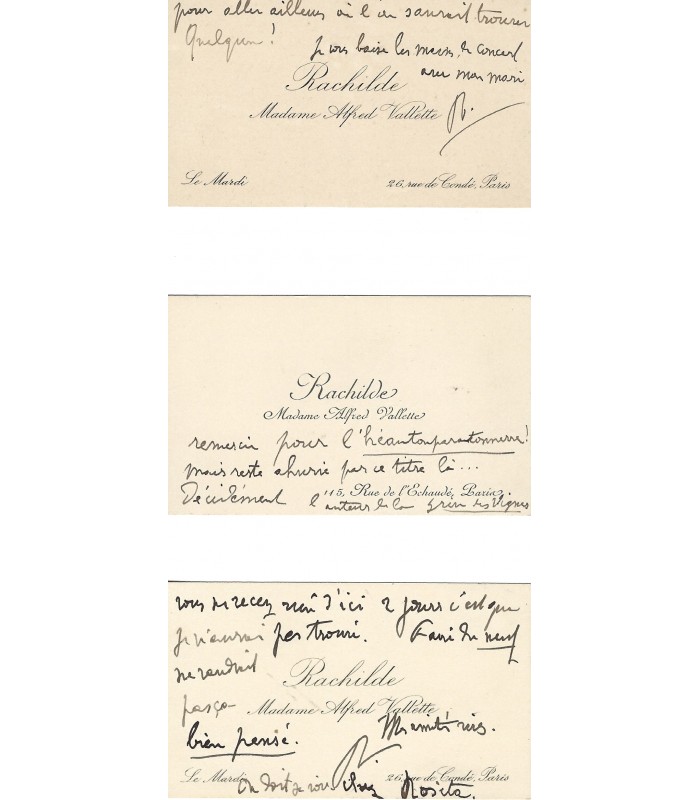 pour aller ailleurs où l'on saurait trouver
Quelqu'un!
Je vous baise les mains, de concert
avec mon mari
Rachilde
Madame Alfred Vallette
R.
Le Mardi
26, rue de Condé, Paris
Rachilde
Madame Alfred Vallette
remercie pour l'héautonparatonnerre!
mais reste ahurie par ce titre là...
Décidément
115, Rue de l'Echaudé, Paris.
l'auteur de la
vous ne recevez rien d'ici 2 jours c'est que
Je n'aurai pas trouvé.
du neuf
ne vaudrait
pas ça
Rachilde
Madame Alfred Vallette
bien pensé.
R.
Le Mardi
26, rue de Condé, Paris
On doit se voir chez Rosita